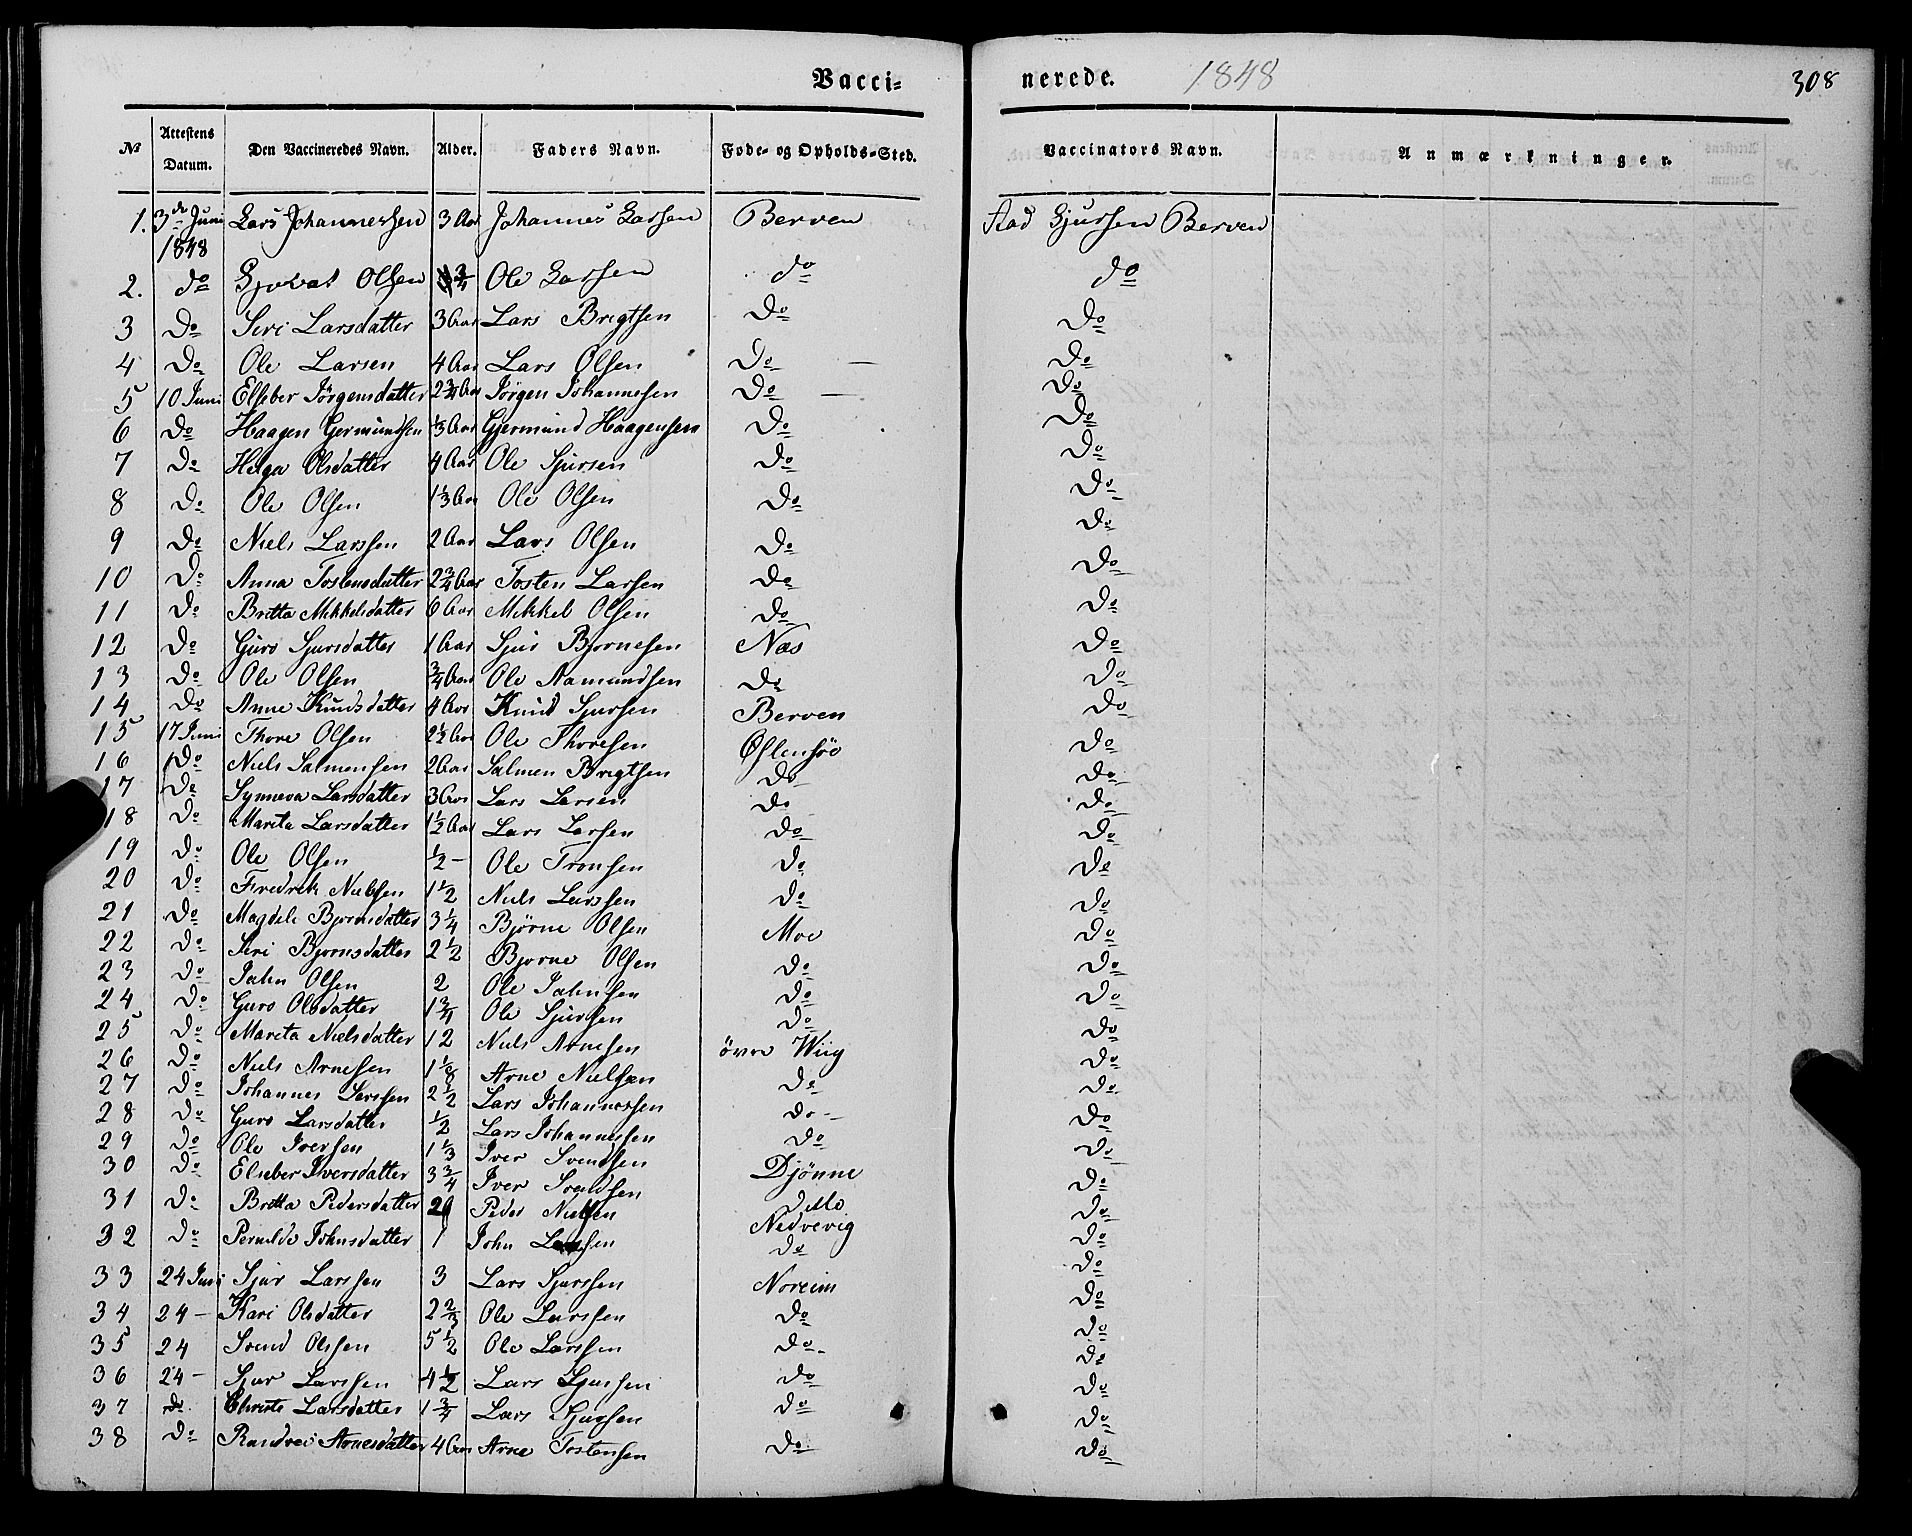 Vacci- nerede. 1848 308
№ Attestens Datum. Den Vaccineredes Navn. Alder. Faders Navn. Føde- og Opholds-Sted. Vaccinators Navn. Anmærkninger.
1. 3de Juni 1848 Lars Johannessen 3 Aar Johannes Larsen Berven Aad Sjursen Berven
2. do Olsen 3/4 Ole Larsen do do
3 Do Siri Larsdatter 3 Aar Lars Brigtsen Do Do
4 Do Ole Larsen 4 Aar Lars Olsen Do — Do
5 10 Juni Elseber Jörgensdatter 2 3/4 Aar Jörgen Johannesen Do — Do
6 Do Haagen Germundsen 1/3 Aar Gjermund Haagensen Do Do
7 Do Helga Olsdatter 4 Aar Ole Sjursen Do Do
8 Do Ole Olsen 1 1/3 Aar Ole Olsen Do Do
9 Do Niels Larssen 2 Aar Lars Olsen Do Do
10 Do Anna Tostensdatter 2 3/4 Aar Tosten Larsen Do Do
11 Do Britta Mikkelsdatter 6 Aar Mikkel Olsen Do Do
12 Do Guro Sjursdatter 1 Aar Sjur Bjornesen Næs Do
13 Do Ole Olsen 3/4 Aar Ole Aamundsen Do Do
14 Do Anne Knudsdatter 4 Aar Knud Sjursen Berven Do
15 17 Juni Thore Olsen 2 1/2 Aar Ole Thoresen Østensöe Do
16 Do Niels Salmensen 2 Aar Salmen Brigtsen Do Do
17 Do Synneva Larsdatter 3 Aar Lars Larsen Do Do
18 Do Marita Larsdatter 1 1/2 Aar Lars Larsen Do Do
19 Do Ole Olsen 1/2 — Ole Tronsen Do Do
20 Do Fredrik Nielsen 1 1/2 Niels Larssen Do Do
21 Do Magdeli Bjornsdatter 3 1/4 Bjørne Olsen Moe Do
22 Do Siri Bjornesdatter 2 1/2 Bjorne Olsen Do Do
23 Do Jahn Olsen 2 Ole Jahnsen Do Do
24 Do Guro Olsdatter 1 3/4 Ole Sjursen Do Do
25 Do Marita Nielsdatter 12 Niels Arnesen övre Wiig Do
26 Do Niels Arnessen 1 1/8 Arne Nielsen Do Do
27 Do Johannes Larssen 2 1/2 Lars Johannessen Do Do
28 Do Guro Larsdatter 1/2 Lars Johannessen Do Do
29 Do Ole Iversen 1 1/3 Iver Svendsen Djönne Do
30 Do Elseber Iversdatter 3 3/4 Iver Svendsen Ditto Do
31 Do Britta Pedersdatter 20 Peder Nielsen Nedvevig Do
32 Do Pernilde Johnsdatter 1 John Larssen Do Do
33 24 Juni Sjur Larssen 3 Lars Sjurssen Noreim Do
34 24 — Kari Olsdatter 2 2/3 Ole Larssen Do Do
35 24 Svend Olssen 5 1/2 Ole Larssen Do Do
36 24 — Sjur Larssen 4 1/2 Lars Sjursen Do Do
37 do Christi Larsdatter 1 3/4 Lars Sjursen Do Do
38 Do Randvei Arnesdatter 4 Aar Arne Tostensen Do Do